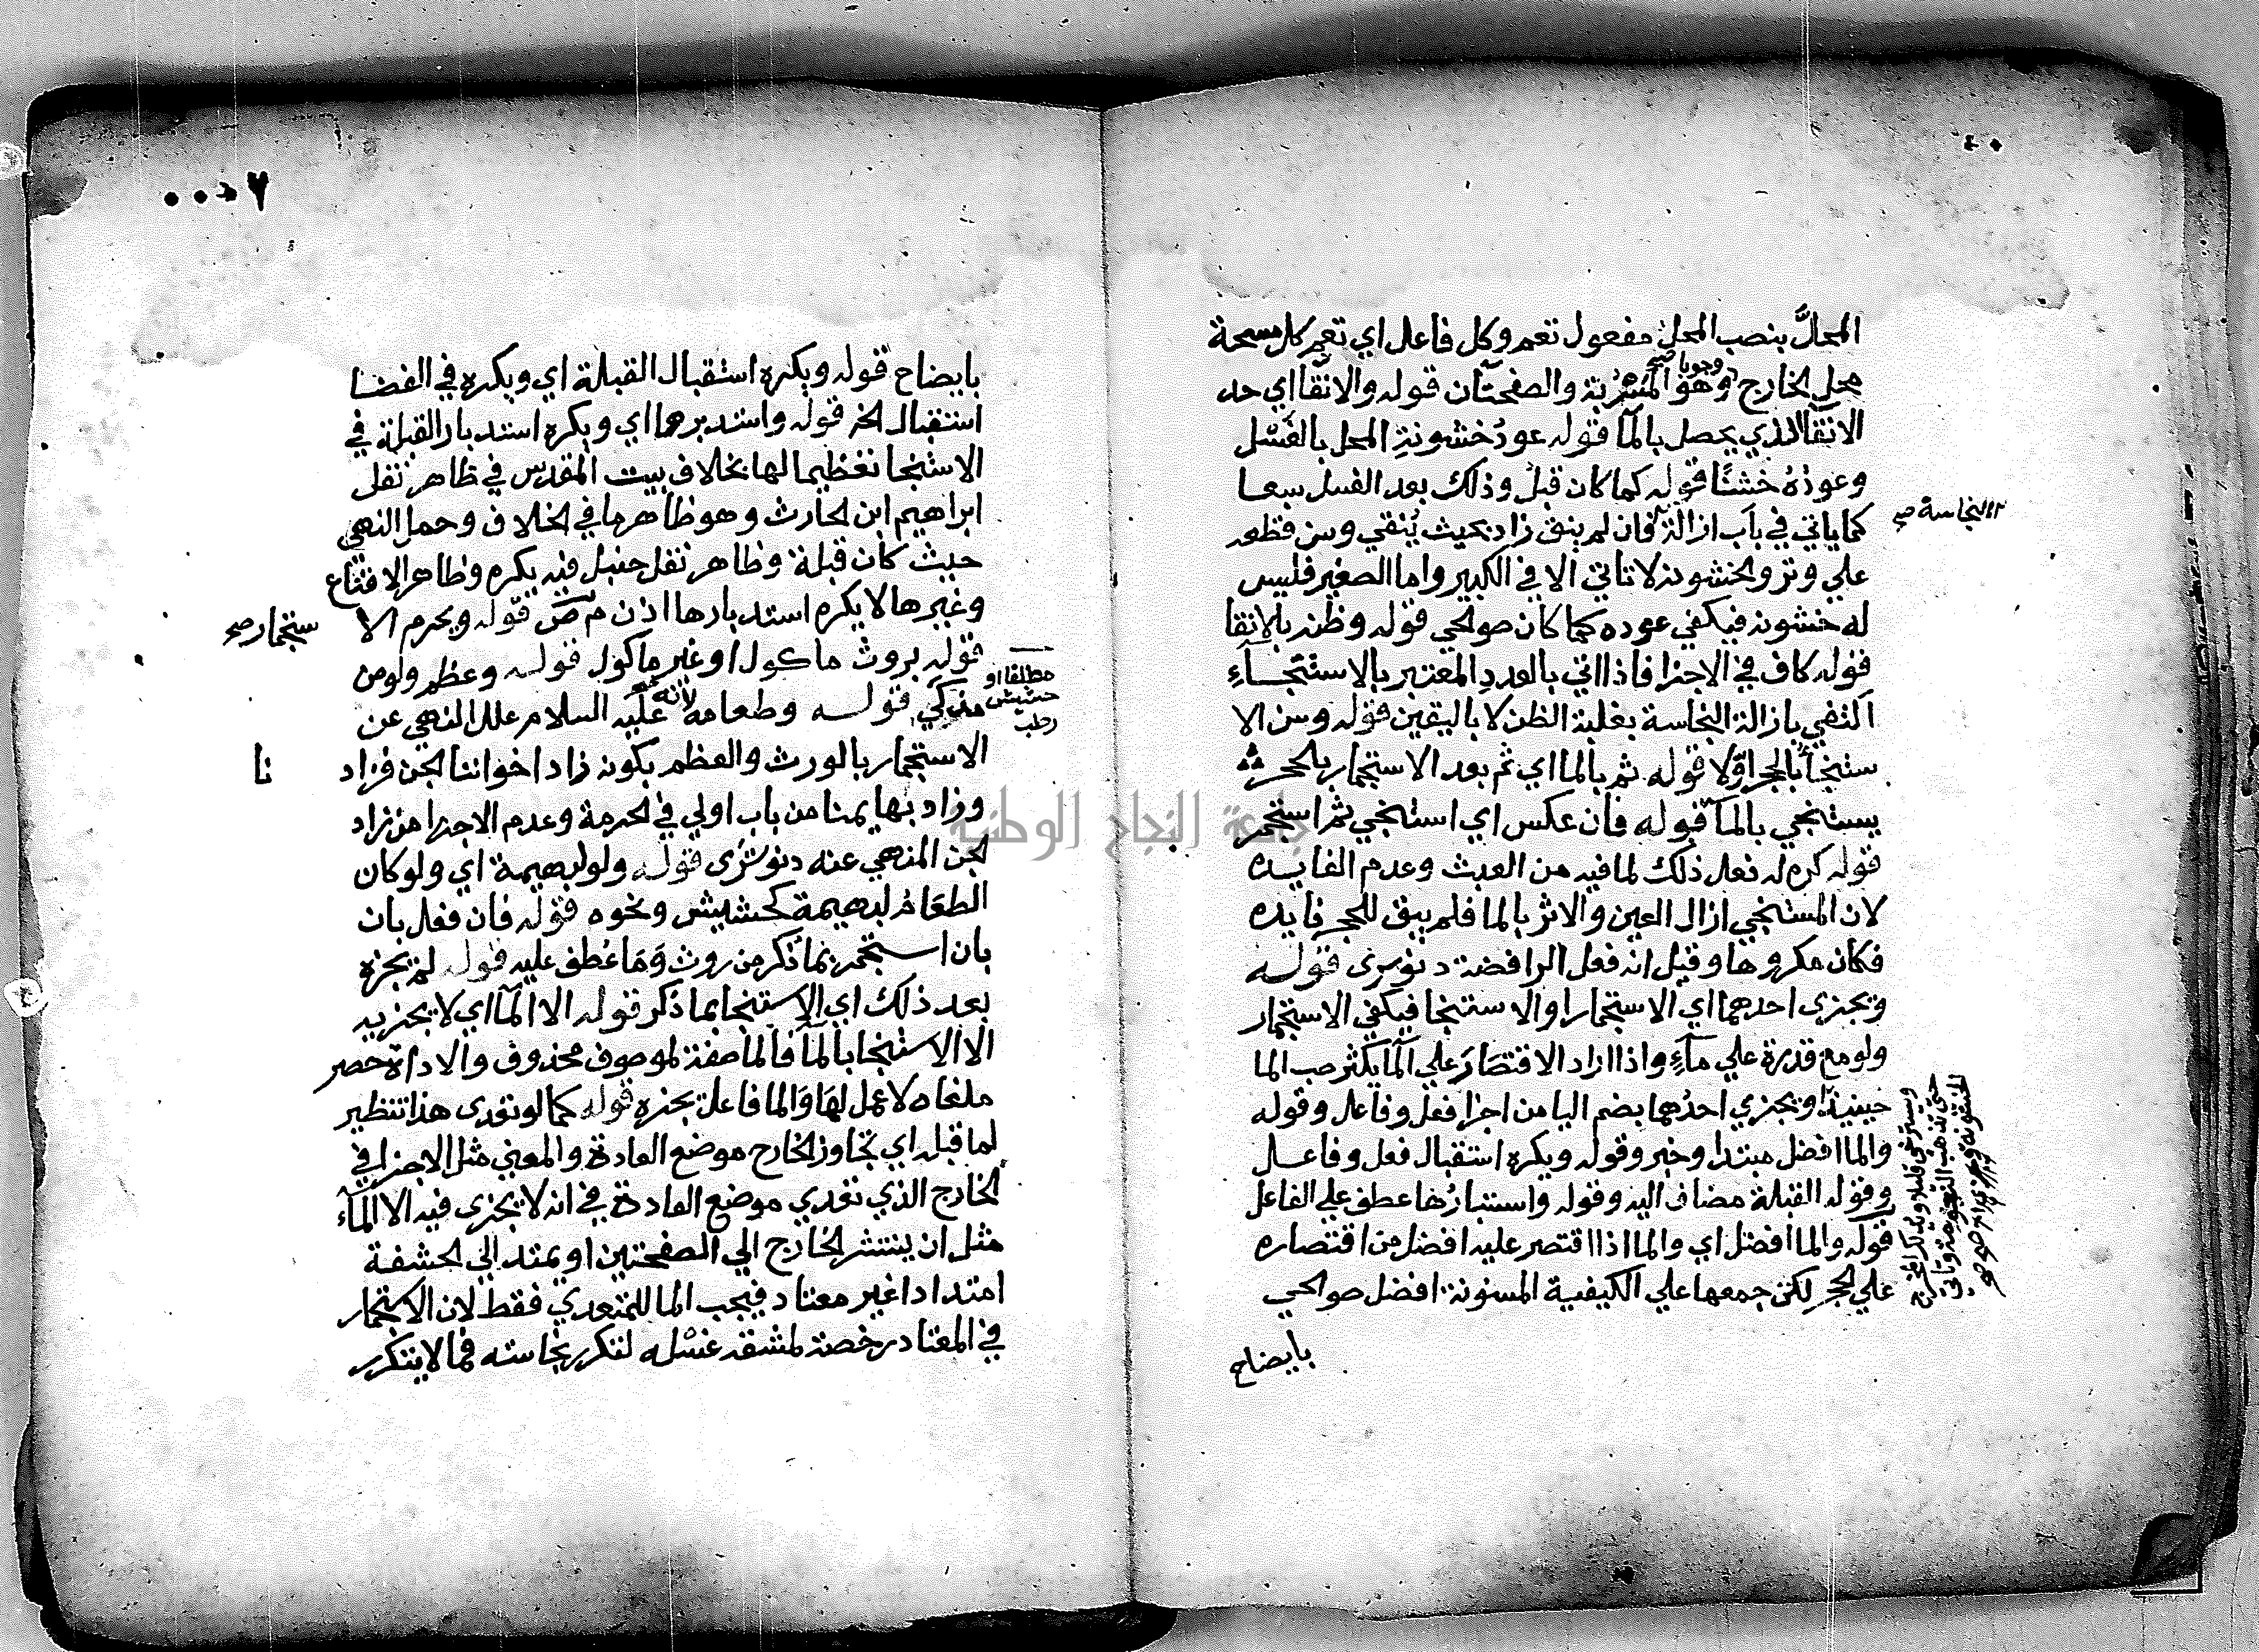 ٤٠
المحلَّ بنصب المحل مفعول تعم وكل فاعل اي تعم كل مسحة
محل الخارج وجوبا صح وهو المسربة والصفحتان قوله والانقا اي حد
الانقا الذي يحصل بالمآ قوله عودُ خشونةِ المحل بالغَسْل
وعودُهُ خشنًا قوله كما كان قبلُ وذلك بعد الغسل سبعا
كما ياتي في باب ازالة فان لم ينق زاد بحيث يُنقي وسن قطعه
النجاسة صح
علي وتر والخشونة لا تاتي الا في الكبير واما الصغير فليس
له خشونه فيكفي عوده كما كان صوالحي قوله وظنه بالانقا
قوله كاف في الاجزا فاذا اتي بالعددِ المعتبر بالاستنجآءِ
اكتفي بازالة النجاسة بغلبة الظن لا باليقين قوله وسن الا
ستنجأ بالحجر اوّلا قوله ثم بالما اي ثم بعد الاستجمار بالحجر
يستنجي بالمآ قوله فان عكس اي استنجي ثم استجمر
قوله كره له فعل ذلك لما فيه من العبث وعدم الفايده
لان المستنجي ازال العين والاثر بالما فلم يبق للحجر فايده
فكان مكروها وقيل انه فعل الرافضة دنوسري قوله
ويجزى احدهما اي الاستجمار او الاستنجا فيكفي الاستجمار
ولو مع قدرة علي مآءٍ واذا اراد الاقتصَارَ علي المآ يكثر صب الما
حينيذ ويجزي احدُهما بضم اليا من اجزا فعل وفاعل وقوله
والما افضل مبتدا وخبر وقوله ويكره استقبال فعل وفاعل
وقوله القبلة مضاف اليه وقوله واستدبارُها عطف علي الفاعل
قوله والما افضل اي والما اذا اقتصر عليه افضل من اقتصاره
علي الحجر لكن جمعها علي الكيفية المسنونة افضل صوالحي
ويسترخي قليلا ويدلك المخرج
حتى تذهب النعومة وتاتي
بايضاح
٠٠٥٧
بايضاح قوله ويكره استقبال القبلة اي ويكره في الفضا
استقبال الخ قوله واستدبرها اي ويكره استدبار القبلة في
الاستنجا تعظيما لها بخلاف بيت المقدس في ظاهر نقل
ابراهيم ابن الحارث وهو ظاهر ما في الخلاف وحمل النهي
حيث كان قبلة وظاهر نقل حنبل فيه يكره وظاهر الاقناع
وغيرها لا يكره استدبارها اذن م ص قوله ويحرم الا
ستجمار صح
قوله بروث ماكول او غير ماكول قوله وعظم ولو من
مذكي قوله وطعامه لانه عليه السلام علل النهي عن
مطلقا او
حشيش
رطب
الاستجمار بالورث والعظم بكونه زاد اخواننا الجن فزاد
نا
وزاد بهايمنا من باب اولي في الحرمة وعدم الاجزا من زاد
الجن المنهي عنه دنوشرى قوله ولو لبهيمة اي ولو كان
الطعَامُ لبهيمة كحشيش ونحوه قوله فان فعل بان
بان استجمر بما ذكر من روث وَمَا عُطف عليه قوله لم يجزه
بعد ذلك اي الاستنجا بما ذكر قوله الا المآ اي لا يجزيه
الا الاستنجا بالمآ فالما صفة لموصوف محذوف والا داة حصر
ملغاه لا عمل لها والما فاعل يجزه قوله كما لو تعدى هذا تنظير
لما قبله اي تجاوز الخارج موضع العادة والمعني مثل الاجزا في
الخارج الذي تعدي موضع العادة في انه لا يجزى فيه الا المآء
مثل ان ينتشر الخارج الي الصفحتين او يمتد الي الحشفة
امتدادا غير معتاد فيجب الما للمتعدي فقط لان الاستجمار
في المعتاد رخصة لمشقة غسْله لتكرر نجاسته فما لا يتكرر
جامعة النجاح الوطنية